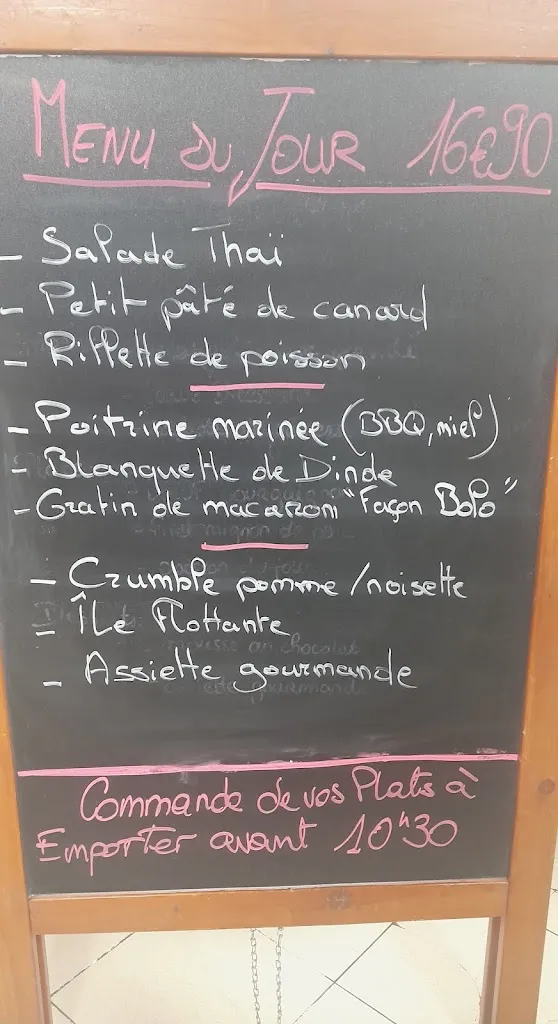 Menu du Jour 16€90
- Salade Thaï
- Petit pâté de canard
- Rillette de poisson
- Poitrine marinée (BBQ, miel)
- Blanquette de Dinde
- Gratin de macaroni "Façon Bolo"
- Crumble pomme/noisette
- Île Flottante
- Assiette gourmande
Commande de vos Plats à
Emporter avant 10h30